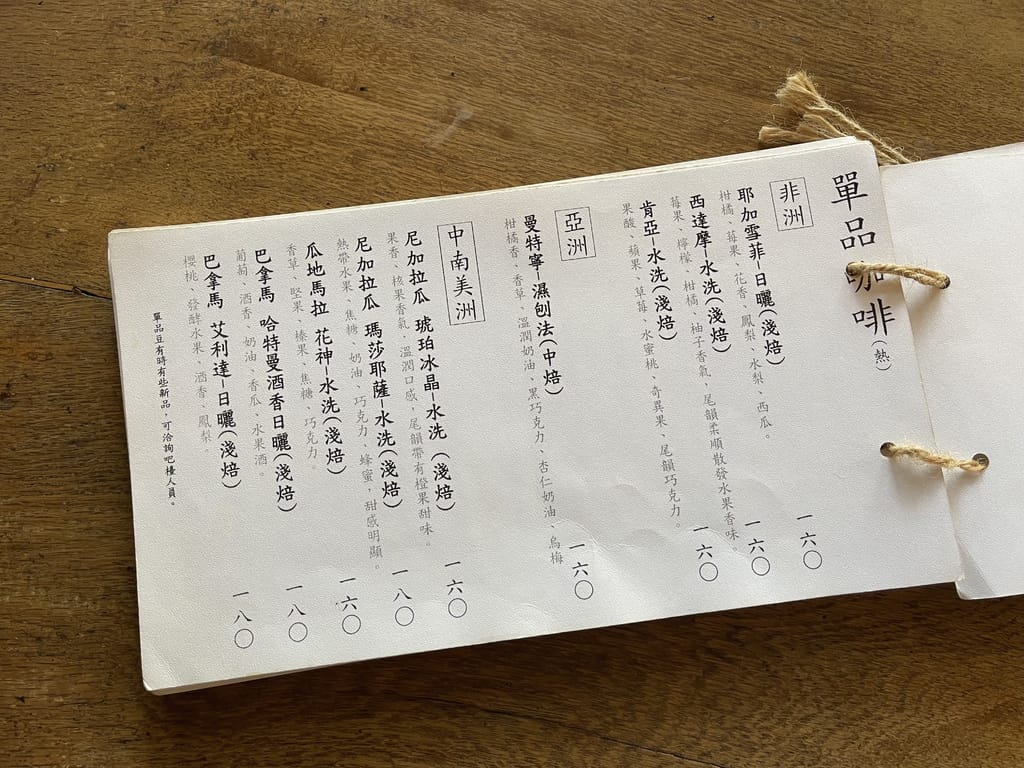 單品咖啡(熱)
非洲
耶加雪菲–日曬(淺焙) 一六〇
柑橘、莓果、花香、鳳梨、水梨、西瓜。
西達摩–水洗(淺焙) 一六〇
莓果、檸檬、柑橘、柚子香氣,尾韻柔順散發水果香味。
肯亞–水洗(淺焙) 一六〇
果酸、蘋果、草莓、水蜜桃、奇異果、尾韻巧克力。
亞洲
曼特寧–濕刨法(中焙) 一六〇
柑橘香、香草、溫潤奶油、黑巧克力、杏仁奶油、烏梅
中南美洲
尼加拉瓜 琥珀冰晶–水洗(淺焙) 一六〇
果香、核果香氣,溫潤口感,尾韻帶有橙果甜味。
尼加拉瓜 瑪莎耶薩–水洗(淺焙) 一八〇
熱帶水果、焦糖、奶油、巧克力、蜂蜜,甜感明顯。
瓜地馬拉 花神–水洗(淺焙) 一六〇
香草、堅果、榛果、焦糖、巧克力。
巴拿馬 哈特曼酒香日曬(淺焙) 一八〇
葡萄、酒香、奶油、香瓜、水果酒。
巴拿馬 艾利達–日曬(淺焙) 一八〇
櫻桃、發酵水果、酒香、鳳梨。
單品豆有時有些新品,可洽詢吧檯人員。